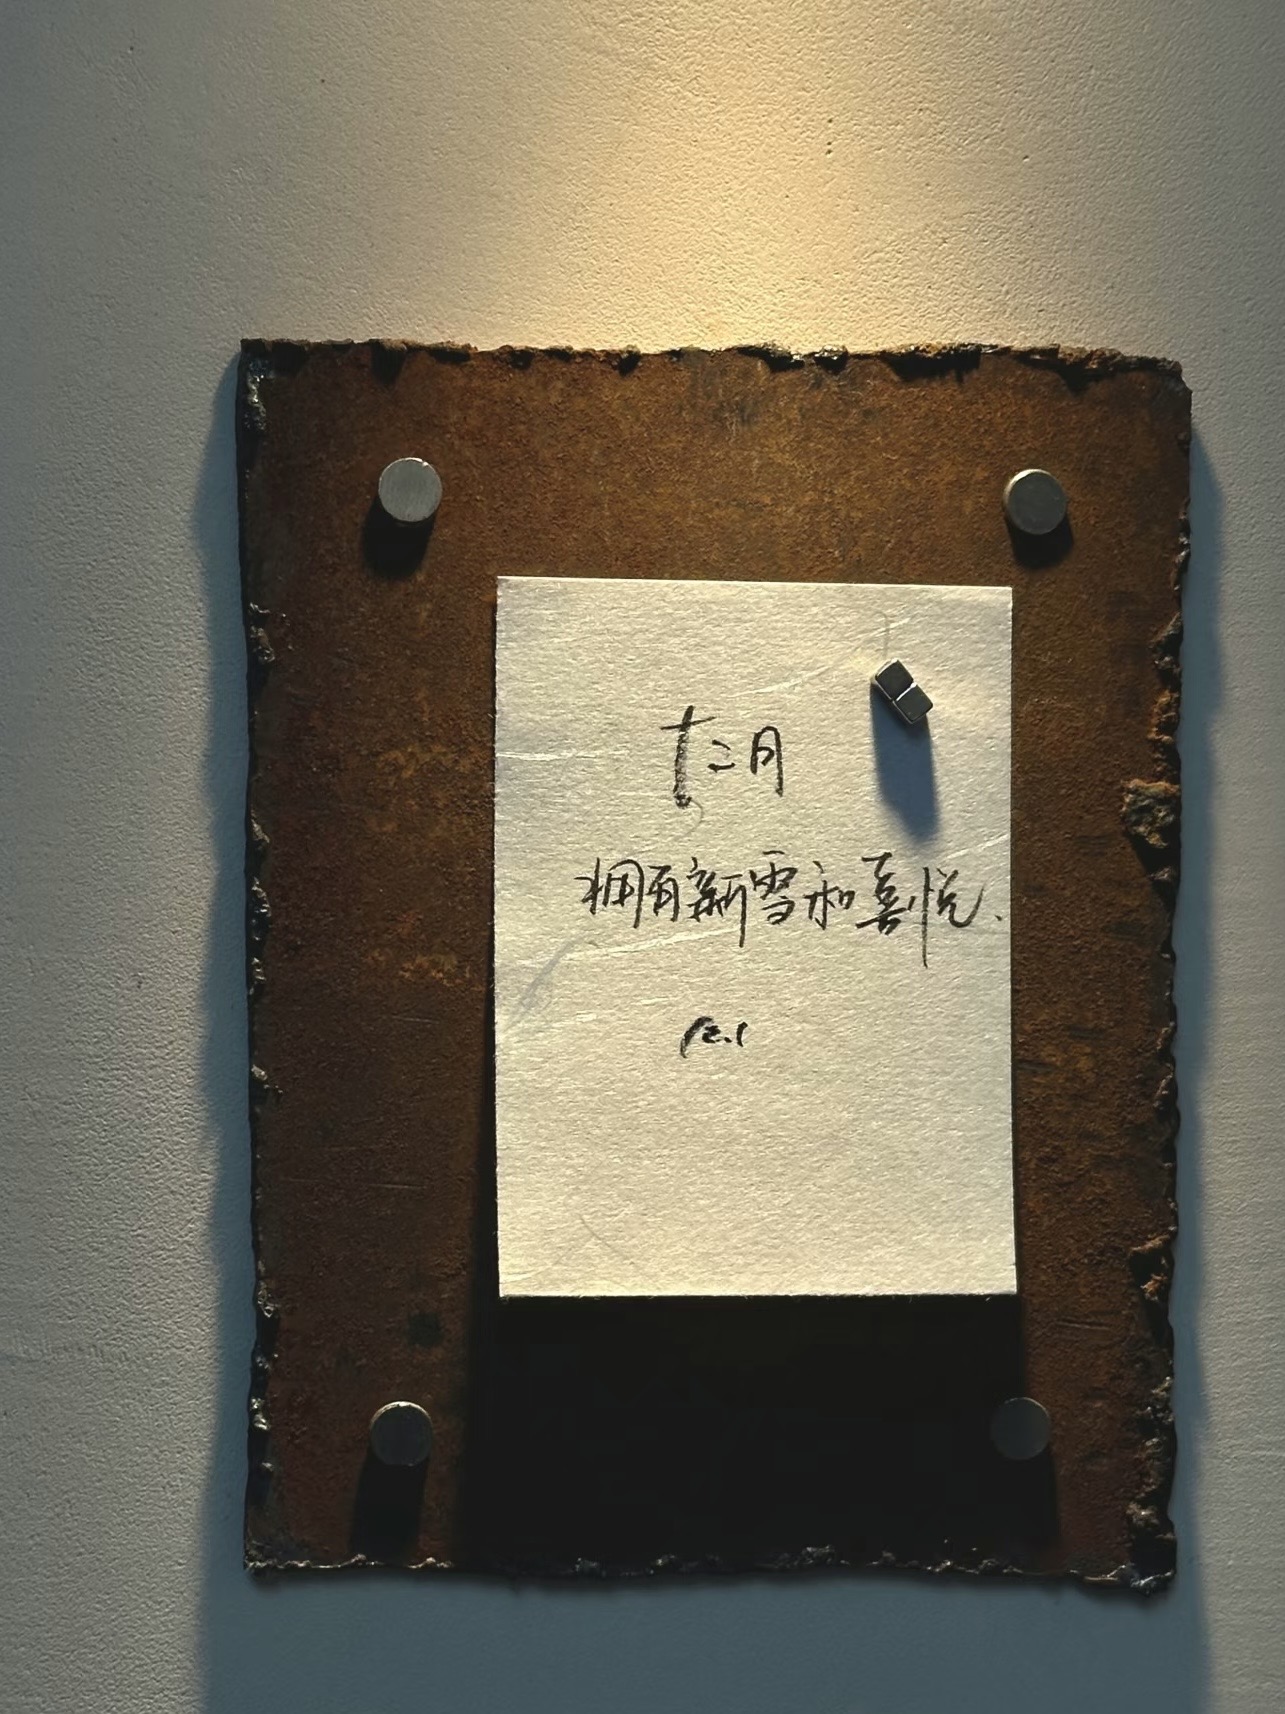 十二月
拥有新雪和喜悦.
12.1